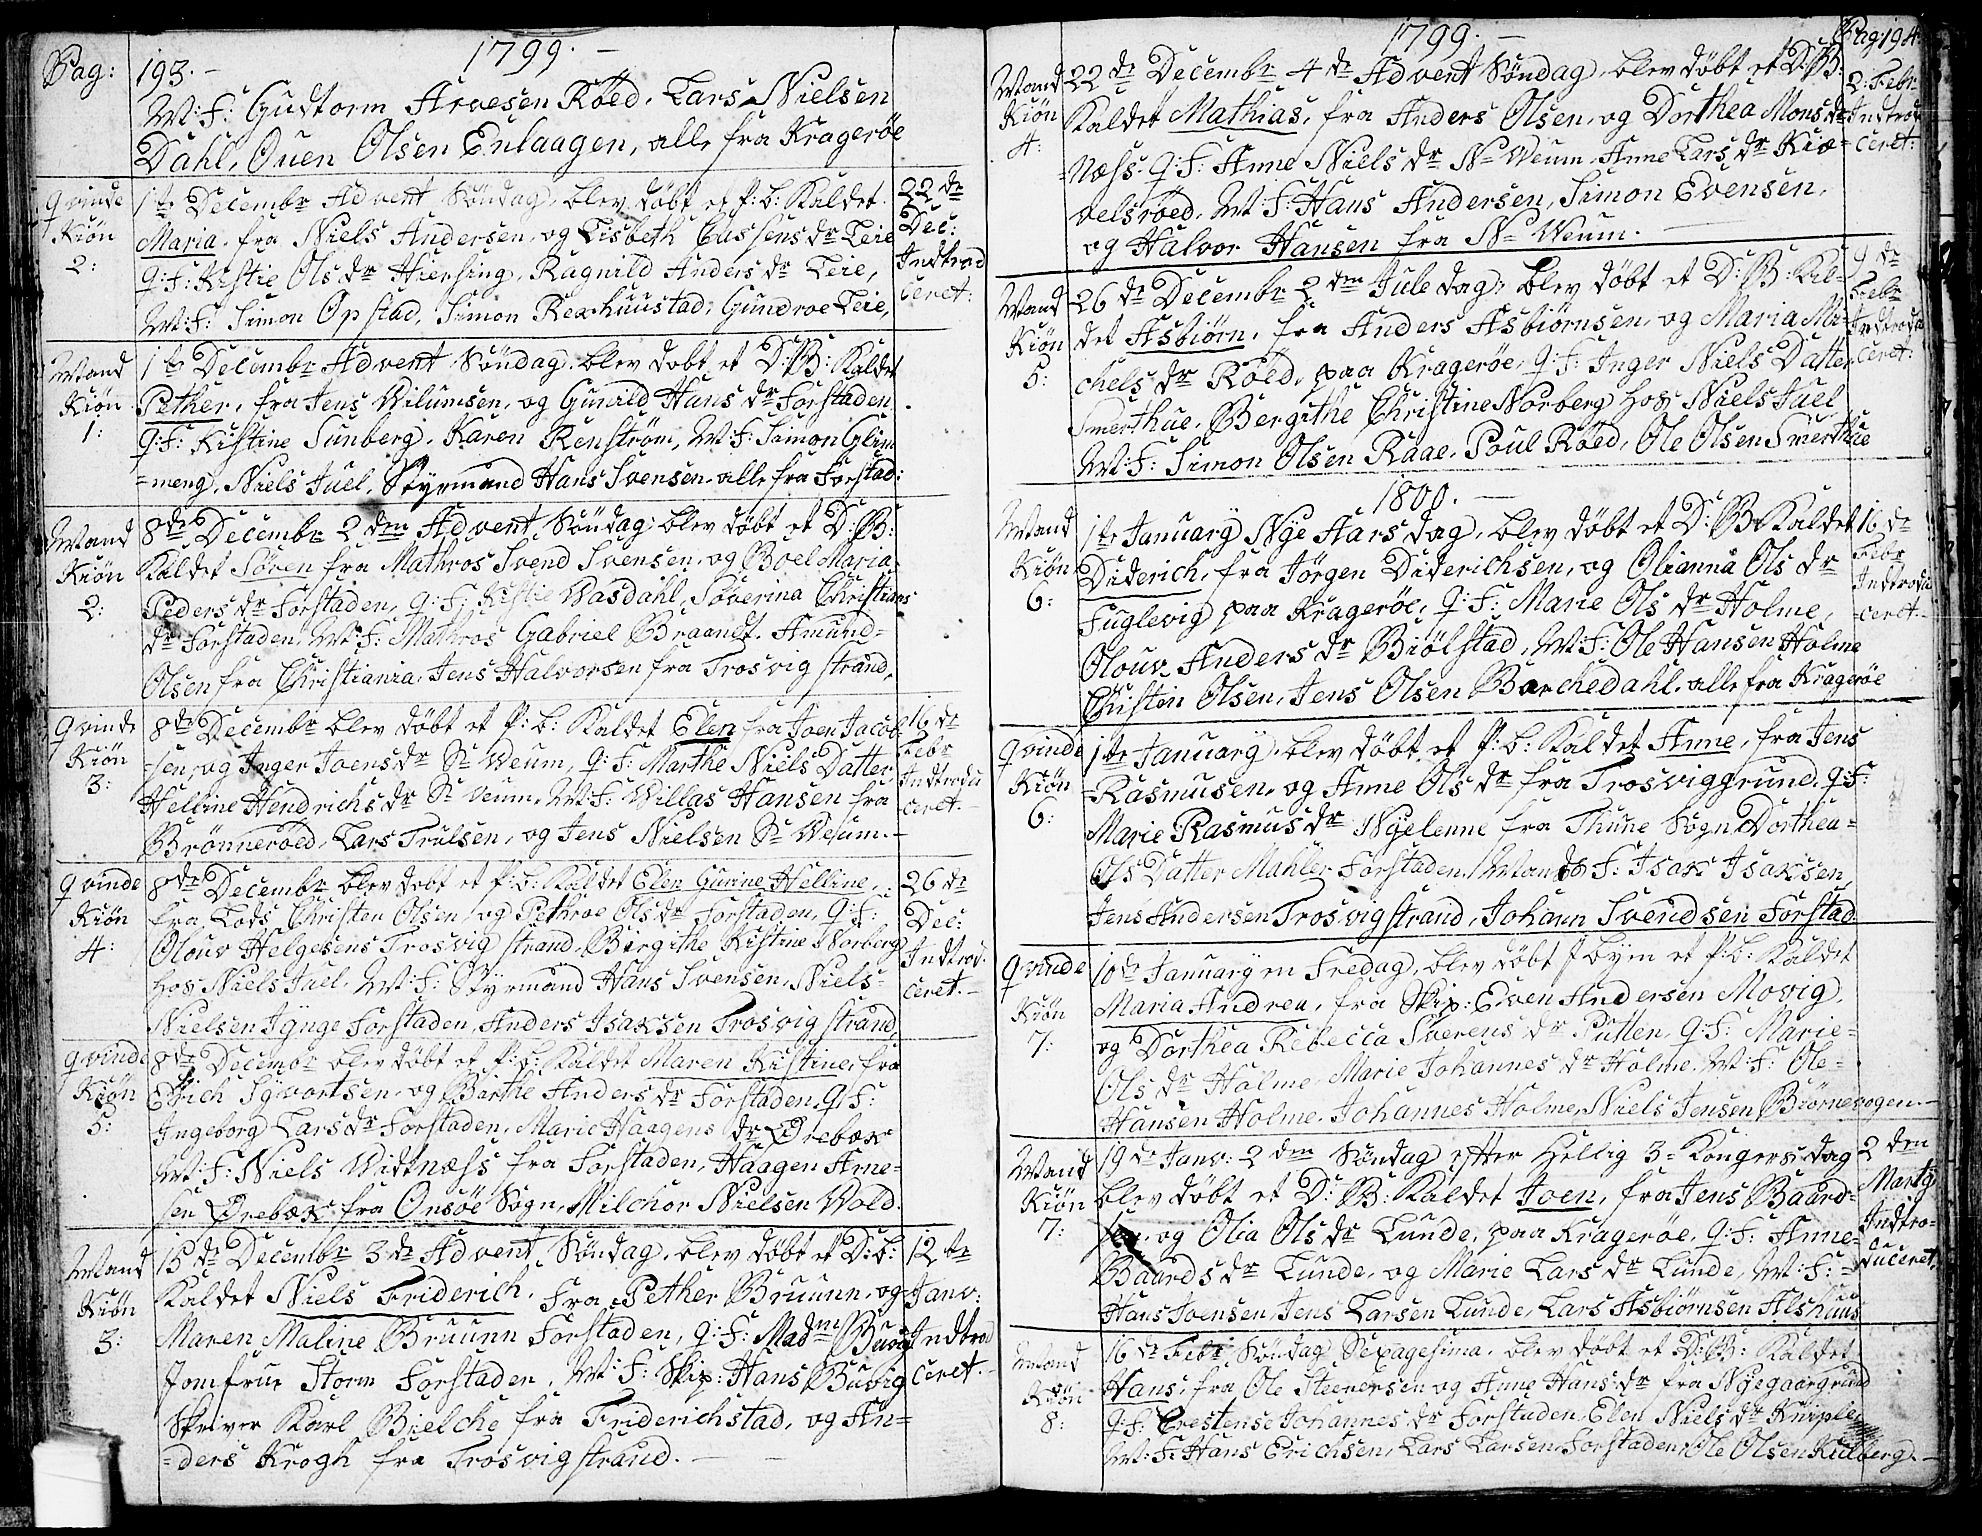 Pag: 193. 1799.
M: F: Gudtorm Arvesen Röed, Lars Nielsen
Dahl, Ouen Olsen Enlaagen, alle fra Krageröe
qvinde Kiön 2:
1te Decembr Advent Söndag, blev döbt et P: b: Kaldet
Maria, fra Niels Andersen, og Lisbeth Cassens dr Leie
Q: F: Kistie Ols dr Hiersing, Ragnild Anders dr Leie,
M: F: Simon Opstad, Simon Rexhuustad, Gundroe Leie,
22 de Dec: Indtrod ceret:
Mand Kiön 1:
1te Decembr Advent Söndag, blev dobt et D: B: Kaldet
Pether, fra Jens Wilumsen, og Gunild Hans dr Forstaden
Q: F: Kistine Sunberg, Karen Renström, M: F: Simon Glim
=meng, Niels Juel, Styrmand Hans Svensen, alle fra Forstad:
Mand Kiön 2:
8de Decembr 2den Advent Söndag, blev döbt et D: B:
Kaldet Sören fra Mathros Svend Svensen, og Boel Maria
Peders dr Forstaden, Q: F: Kistie Vasdahl, Söverina Christians
dr Forstaden, M: F: Mathros Gabriel Braandt, Amund=
Olsen fra Christiania, Jens Halvorsen fra Trosvig strand,
qvinde Kiön 3:
8de Decembr blev döbt et P: b: Kaldet Elen fra Joen Jacob
=sen, og Inger Joens dr Sr Weum, Q: F: Marthe Niels Datter,
Helline Hendrichs dr Sr Veum, M: F: Willas Hansen fra
Brönneröed, Lars Trulsen, og Jens Nielsen Sr Weum.-
16 de Febr Indtrodu ceret.-
qvinde Kiön 4:
8de Decembr blev dobt et P: b: Kaldet Elen Gurine Helline,
fra Lods Christen Olsen, og Pethroe Ols dr Forstaden, Q: F:
Olouv Helgesens Trosvig strand, Birgithe Kistine Norberg
hos Niels Juel, M: F: Styrmand Hans Svensen, Niels=
Nielsen Iynge Forstaden, Anders Isaksen Trosvig strand,
26 de Dec: Indtrod. ceret.-
qvinde Kiön 5:
8de Decembr blev döbt et P: b: Kaldet Maren Kistine, fra
Erich Sivortsen, og Barthe Anders dr Forstaden, Q: F:
Ingeborg Lars dr Forstaden, Marie Haagens dr Örebæk
M: F: Niels Widtnæss fra Forstaden, Haagen Arne=
sen Örebæk fra Onsöe Sogn, Milchor Nielsen Vold.
Mand Kiön 3:
15 de Decembr 3 de Advent Söndag, blev döbt et D: b:
Kaldet Niels Friderich, fra Pether Bruunn, og
Maren Maline Bruunn Forstaden, Q: F: Madm Buvig
Jomfrue Storm Forstaden, M: F: Skip: Hans Buvig
Skriver Karl Bielche fra Friderichstad, og An=
=ders Krogh fra Trosvig strand.-
12 te Janv: Indtrod ceret.-
1799. Pag: 194
Mand Kiön 4:
22 de Decembr 4 de Advent Söndag, blev döbt et D: B:
Kaldet Mathias, fra Anders Olsen, og Dorthea Mons dr
Næss. Q: F: Anne Niels dr Nr Weum, Anne Lars dr Kiæ=
velsröed, M: F: Hans Andersen, Simon Evensen,
og Halvor Hansen fra Nr Weum.
2: Febr. Indtrod ceret:
Mand Kiön 5:
26 de Decembr 2 den Jule dag, blev döbt et D: B: Kal=
det Asbiörn, fra Anders Asbiörnsen, og Maria Mi=
chels dr Röed, paa Krageröe, Q: F: Inger Niels Datter
Smerthue, Bergithe Christine Norberg hos Niels Juel
M: F: Simon Olsen Raae, Poul Röed, Ole Olsen Smerthue
9 de Febr Indtrodu ceret:
1800.
Mand Kiön 6:
1te January Nye Aars dag, blev döbt et D: B: Kaldet
Diderich, fra Jörgen Diderichsen, og Olianna Ols dr
Fuglevig paa Krageröe, Q: F: Marie Ols dr Holme,
Olouv Anders dr Biölstad, M: F: Ole Hansen Holme
Christen Olsen, Jens Olsen Barchedahl, alle fra Krageröe
16 de Febr Indtrodu =ceret.-
qvinde Kiön 6:
1te January, blev döbt et P: b: Kaldet Anne, fra Jens
Rasmusen, og Anne Ols dr fra Trosviggrund, Q: F:
Marie Rasmus dr Nyelenne fra Thune Sogn, Dorthea=
Ols Datter Mahler Forstaden, Mands F: Isak Isaksen
Jens Andersen Trosvig strand, Johann Svendsen Forstad
qvinde Kiön 7:
10 de January en Fredag, blev döbt i Byen et P: b: Kaldet
Maria Andrea, fra Skip: Even Andersen Movig,
og Dorthea Rebecca Sverens dr Putten, Q: F: Marie=
Ols dr Holme, Marie Johannes dr Holme, M: F: Ole=
Hansen Holme, Johannes Holme, Niels Jensen Biörnevogen.-
Mand Kiön 7:
19 de Janv: 2 den Söndag efter Hellig 3= Kongers dag
blev döbt et D: B: Kaldet Joen, fra Jens Baard=
sen, og Olia Ols dr Lunde, paa Krageröe, Q: F: Anne=
Baards dr Lunde, og Marie Lars dr Lunde, M: F:
Hans Joensen, Jens Larsen Lunde, Lars Asbiörnsen Alshuus
2 den Martz Indtro= duceret,
Mand Kiön 8:
16 de Febr Söndag Sexagesima, blev dobt et D: B: Kaldet
Hans, fra Ole Steenersen og Anne Hans dr fra Nyegaargrund
Q: F: Crestense Johannes dr Forstaden, Elen Niels dr Kniple
M: F: Hans Erichsen, Lars Larsen Forstaden, Ole Olsen Kulberg.-